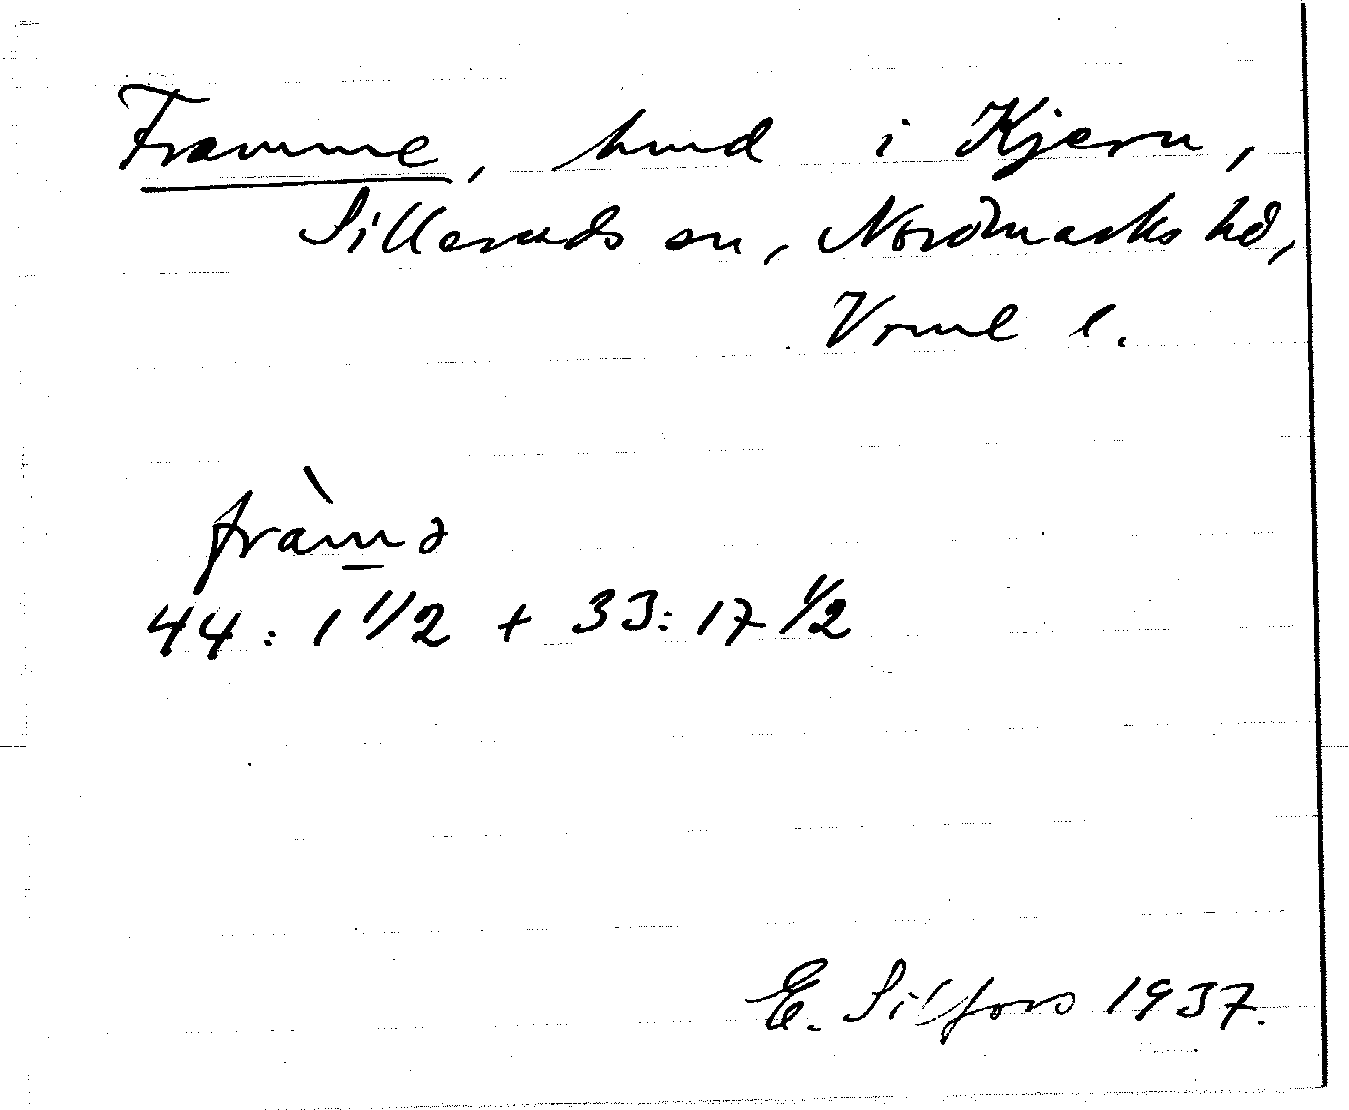 Framme, hund i Kjern,
Silleruds sn, Nordmarks hd,
Vrml l.
fràmə
44: 1 1/2 + 33: 17 1/2
E. Silfors 1937.